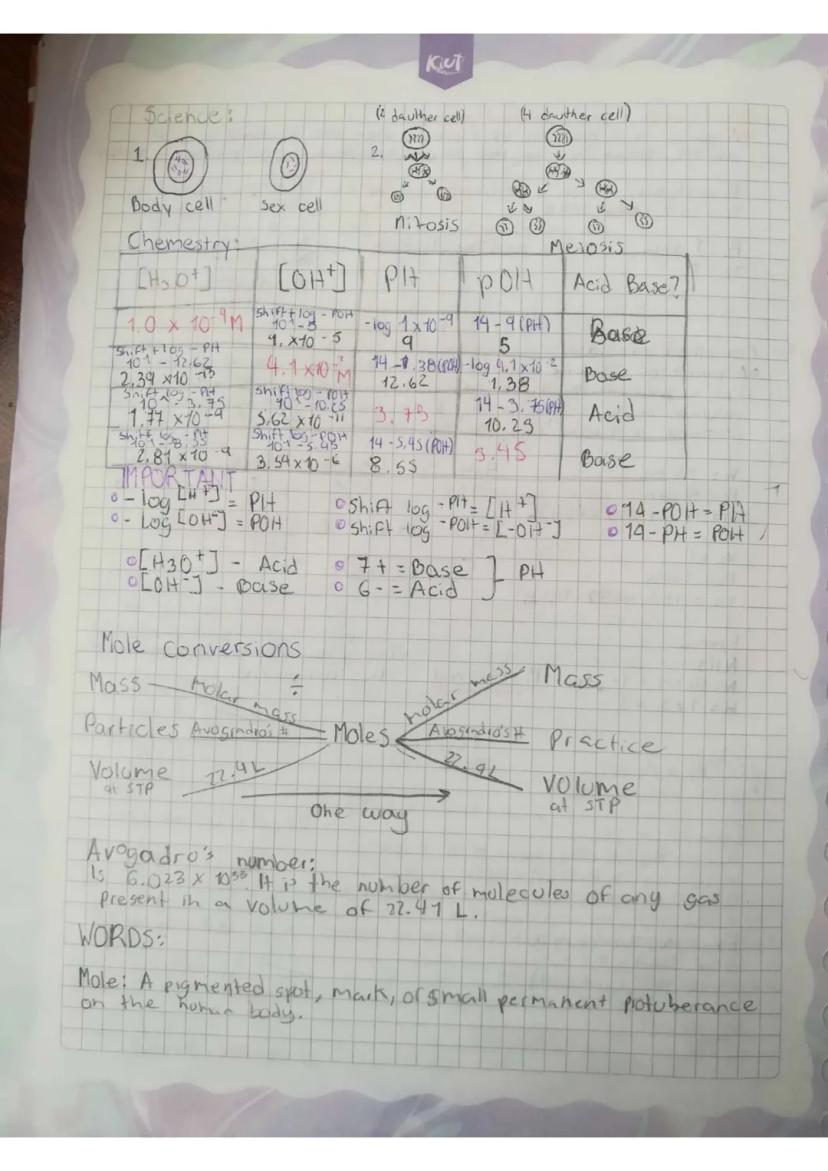 Kiut
Science:
(2 dauther cell) (4 dauther cell)
1. 2.
Body cell Sex cell
Mitosis
Meiosis
Chemestry:
[H3O+] [OH+] PH pOH Acid Base?
1.0 x 10-9 M
shift+log - POH
10^1 - 5
1. x10 - 5
-log 1x10-9
9
14-9(PH)
5
Base
Shift + log - PH
10^1 - 12.62
2.39 x10 -13
4.1 x10-2 M
14 - 1.38(POH)
12.62
-log 4.1x10-2
1,38
Base
Shift log - PH
10^1 - 3.75
1,77 x10-9
shift log - POH
10^1 - 10.25
5.62 x10-11
3.75
14-3.75(PH)
10.25
Acid
Shift log - PH
10^1 - 8.55
2.81 x10-9
Shift log - POH
10^1 - 5.45
3.54x10-6
14 -5.45(POH)
8.55
5.45
Base
IMPORTANT
- log [H+] = PH Shift log -PH = [H+] 14 - POH = PH
- Log [OH-] = POH shift log -POH = [-OH-] 14 - PH = POH
[H3O+] - Acid 7+ = Base PH
[OH-] - Base 6- = Acid
Mole conversions
Mass Molar mass ÷ Molar mass Mass
Particles Avogrndro's # Moles Avogrndro's # Practice
Volume 22.4L 22.4L Volume
at STP at STP
One way
Avogadro's number:
Is 6.023 x 10 . It is the number of molecules of any gas
present in a volume of 22.41 L.
WORDS:
Mole: A pigmented spot, mark, or small permanent potuberance
on the human body.